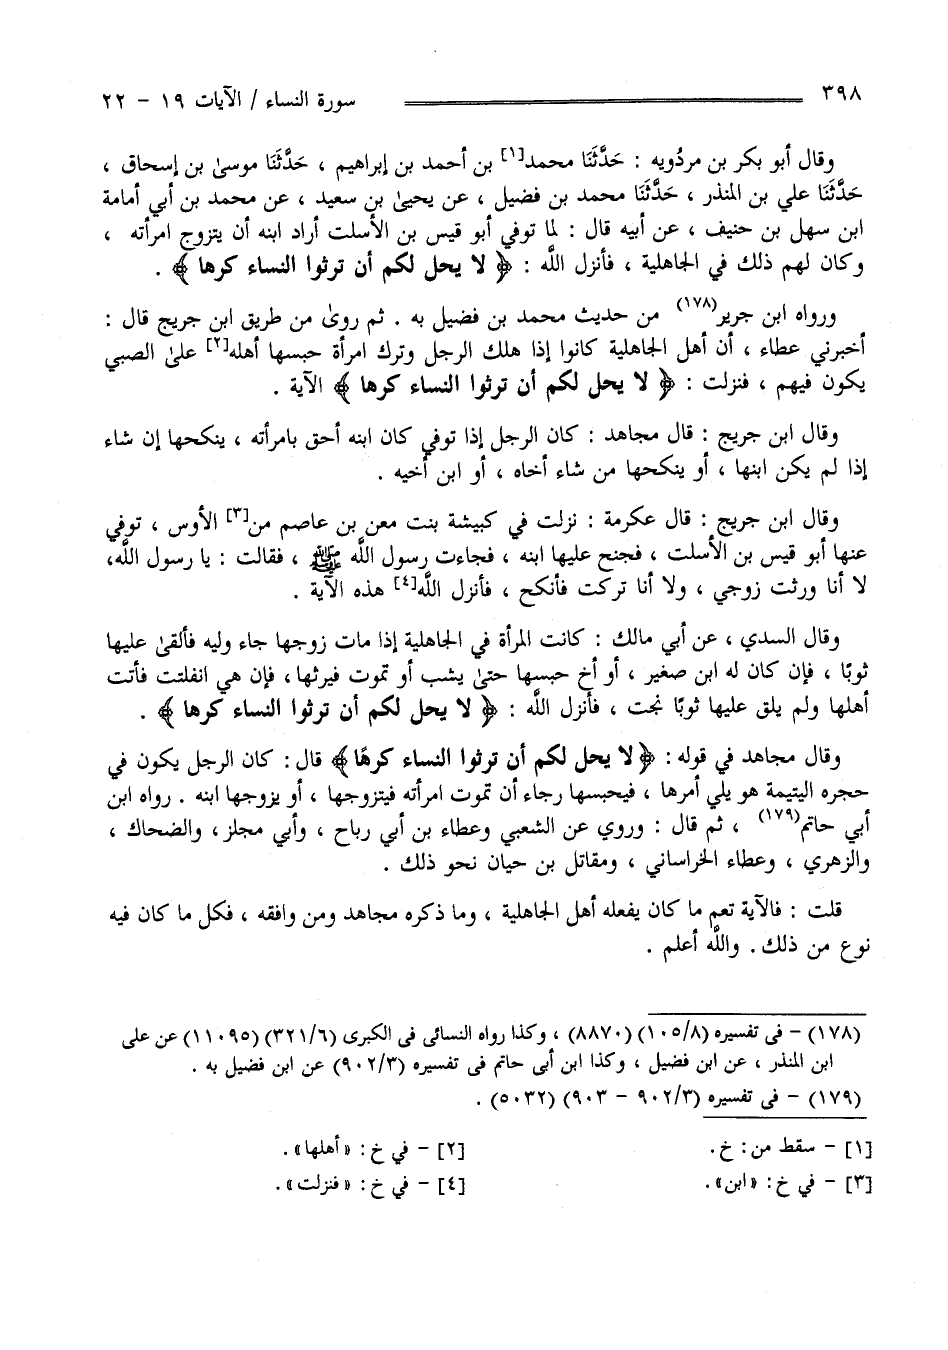 ٣٩٨ سورة النساء / الآيات ١٩ - ٢٢
وقال أبو بكر بن مردُويه : حَدَّثَنَا محمد[١] بن أحمد بن إبراهيم ، حَدَّثَنَا موسىٰ بن إسحاق ،
حَدَّثَنَا علي بن المنذر ، حَدَّثَنَا محمد بن فضيل ، عن يحيىٰ بن سعيد ، عن محمد بن أبي أمامة
ابن سهل بن حنيف ، عن أبيه قال : لما توفي أبو قيس بن الأسلت أراد ابنه أن يتزوج امرأته ،
وكان لهم ذلك في الجاهلية ، فأنزل اللَّه : ﴿ لا يحل لكم أن ترثوا النساء كرها ﴾ .
ورواه ابن جرير(١٧٨) من حديث محمد بن فضيل به . ثم روىٰ من طريق ابن جريج قال :
أخبرني عطاء ، أن أهل الجاهلية كانوا إذا هلك الرجل وترك امرأة حبسها أهله[٢] علىٰ الصبي
يكون فيهم ، فنزلت : ﴿ لا يحل لكم أن ترثوا النساء كرها ﴾ الآية .
وقال ابن جريج : قال مجاهد : كان الرجل إذا توفي كان ابنه أحق بامرأته ، ينكحها إن شاء
إذا لم يكن ابنها ، أو ينكحها من شاء أخاه ، أو ابن أخيه .
وقال ابن جريج : قال عكرمة : نزلت في كبيشة بنت معن بن عاصم من[٣] الأوس ، توفي
عنها أبو قيس بن الأسلت ، فجنح عليها ابنه ، فجاءت رسول اللَّه ﷺ ، فقالت : يا رسول اللَّه،
لا أنا ورثت زوجي ، ولا أنا تركت فأنكح ، فأنزل اللَّه[٤] هذه الآية .
وقال السدي ، عن أبي مالك : كانت المرأة في الجاهلية إذا مات زوجها جاء وليه فألقىٰ عليها
ثوبًا ، فإن كان له ابن صغير ، أو أخ حبسها حتىٰ يشب أو تموت فيرثها، فإن هي انفلتت فأتت
أهلها ولم يلق عليها ثوبًا نجت ، فأنزل اللَّه : ﴿ لا يحل لكم أن ترثوا النساء كرها ﴾ .
وقال مجاهد في قوله : ﴿لا يحل لكم أن ترثوا النساء كرهًا﴾ قال : كان الرجل يكون في
حجره اليتيمة هو يلي أمرها ، فيحبسها رجاء أن تموت امرأته فيتزوجها ، أو يزوجها ابنه . رواه ابن
أبي حاتم(١٧٩) ، ثم قال : وروي عن الشعبي وعطاء بن أبي رباح ، وأبي مجلز، والضحاك ،
والزهري ، وعطاء الخراساني ، ومقاتل بن حيان نحو ذلك .
قلت : فالآية تعم ما كان يفعله أهل الجاهلية ، وما ذكره مجاهد ومن وافقه ، فكل ما كان فيه
نوع من ذلك . واللَّه أعلم .
(١٧٨) - فى تفسيره (١٠٥/٨) (٨٨٧٠) ، وكذا رواه النسائى فى الكبرى (٣٢١/٦) (١١٠٩٥) عن على
ابن المنذر ، عن ابن فضيل ، وكذا ابن أبى حاتم فى تفسيره (٩٠٢/٣) عن ابن فضيل به .
(١٧٩) - فى تفسيره (٩٠٢/٣ - ٩٠٣) (٥٠٣٢) .
[١] - سقط من: خ. [٢] - في خ: «أهلها».
[٣] - في خ: «ابن». [٤] - في خ: «فنزلت».